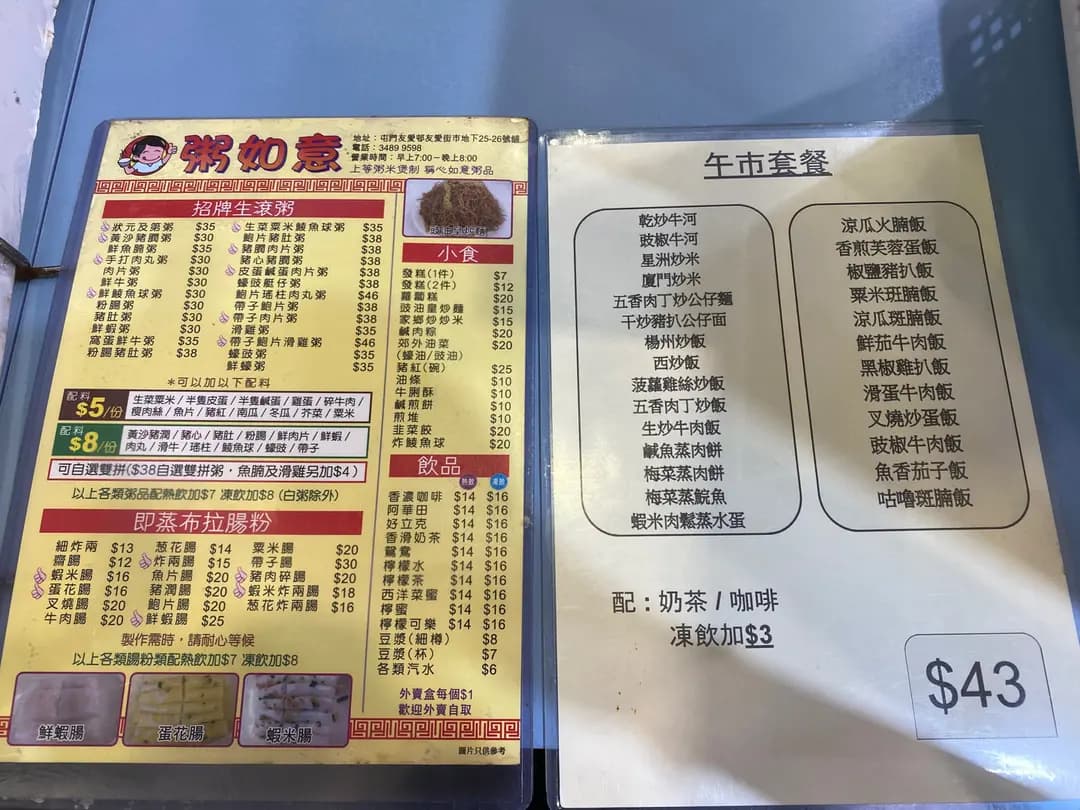 粥如意
地址：屯門友愛邨友愛街市地下25-26號舖
電話：3489 9598
營業時間：早上7:00－晚上8:00
上等粥米煲制 稱心如意粥品
招牌生滾粥
狀元及第粥 $35
黃沙豬膶粥 $30
鮮魚腩粥 $35
手打肉丸粥 $30
肉片粥 $30
鮮牛粥 $30
鮮鯪魚球粥 $30
粉腸粥 $30
豬肚粥 $30
鮮蝦粥 $30
窩蛋鮮牛粥 $35
粉腸豬肚粥 $38
生菜粟米鯪魚球粥 $35
鮑片豬肚粥 $38
豬膶肉片粥 $38
豬心豬膶粥 $38
皮蛋鹹蛋肉片粥 $38
蠔豉艇仔粥 $38
鮑片瑤柱肉丸粥 $46
帶子鮑片粥 $38
帶子肉片粥 $38
滑雞粥 $35
帶子鮑片滑雞粥 $46
蠔豉粥 $35
鮮蠔粥 $35
*可以加以下配料
配料 $5/份
生菜粟米/半隻皮蛋/半隻鹹蛋/雞蛋/碎牛肉/
瘦肉絲/魚片/豬紅/南瓜/冬瓜/芥菜/粟米
配料 $8/份
黃沙豬潤/豬心/豬肚/粉腸/鮮肉片/鮮蝦/
肉丸/滑牛/瑤柱/鯪魚球/蠔豉/帶子
可自選雙拼($38自選雙拼粥，魚腩及滑雞另加$4)
以上各類粥品配熱飲加$7 凍飲加$8 (白粥除外)
即蒸布拉腸粉
細炸兩 $13
齋腸 $12
蝦米腸 $16
蛋花腸 $16
叉燒腸 $20
牛肉腸 $20
葱花腸 $14
炸兩腸 $15
魚片腸 $20
豬潤腸 $20
鮑片腸 $20
鮮蝦腸 $25
粟米腸 $20
帶子腸 $30
豬肉碎腸 $20
蝦米炸兩腸 $18
葱花炸兩腸 $16
製作需時，請耐心等候
以上各類腸粉類配熱飲加$7 凍飲加$8
鮮蝦腸
蛋花腸
蝦米腸
小食
發糕(1件) $7
發糕(2件) $12
蘿蔔糕 $20
豉油皇炒麵 $15
家鄉炒炒米 $15
鹹肉粽 $20
郊外油菜 $20
(蠔油/豉油)
豬紅(碗) $25
油條 $10
牛脷酥 $10
鹹煎餅 $10
煎堆 $10
韭菜餃 $20
炸鯪魚球 $20
飲品
熱飲 凍飲
香濃咖啡 $14 $16
阿華田 $14 $16
好立克 $14 $16
香滑奶茶 $14 $16
鴛鴦 $14 $16
檸檬水 $14 $16
檸檬茶 $14 $16
西洋菜蜜 $14 $16
檸蜜 $14 $16
檸檬可樂 $14 $16
豆漿(細樽) $8
豆漿(杯) $7
各類汽水 $6
外賣盒每個$1
歡迎外賣自取
圖片只供參考
午市套餐
乾炒牛河
豉椒牛河
星洲炒米
廈門炒米
五香肉丁炒公仔麵
干炒豬扒公仔面
楊州炒飯
西炒飯
菠蘿雞絲炒飯
五香肉丁炒飯
生炒牛肉飯
鹹魚蒸肉餅
梅菜蒸肉餅
梅菜蒸鯇魚
蝦米肉鬆蒸水蛋
涼瓜火腩飯
香煎芙蓉蛋飯
椒鹽豬扒飯
粟米斑腩飯
涼瓜斑腩飯
鮮茄牛肉飯
黑椒雞扒飯
滑蛋牛肉飯
叉燒炒蛋飯
豉椒牛肉飯
魚香茄子飯
咕嚕斑腩飯
配：奶茶 / 咖啡
凍飲加$3
$43